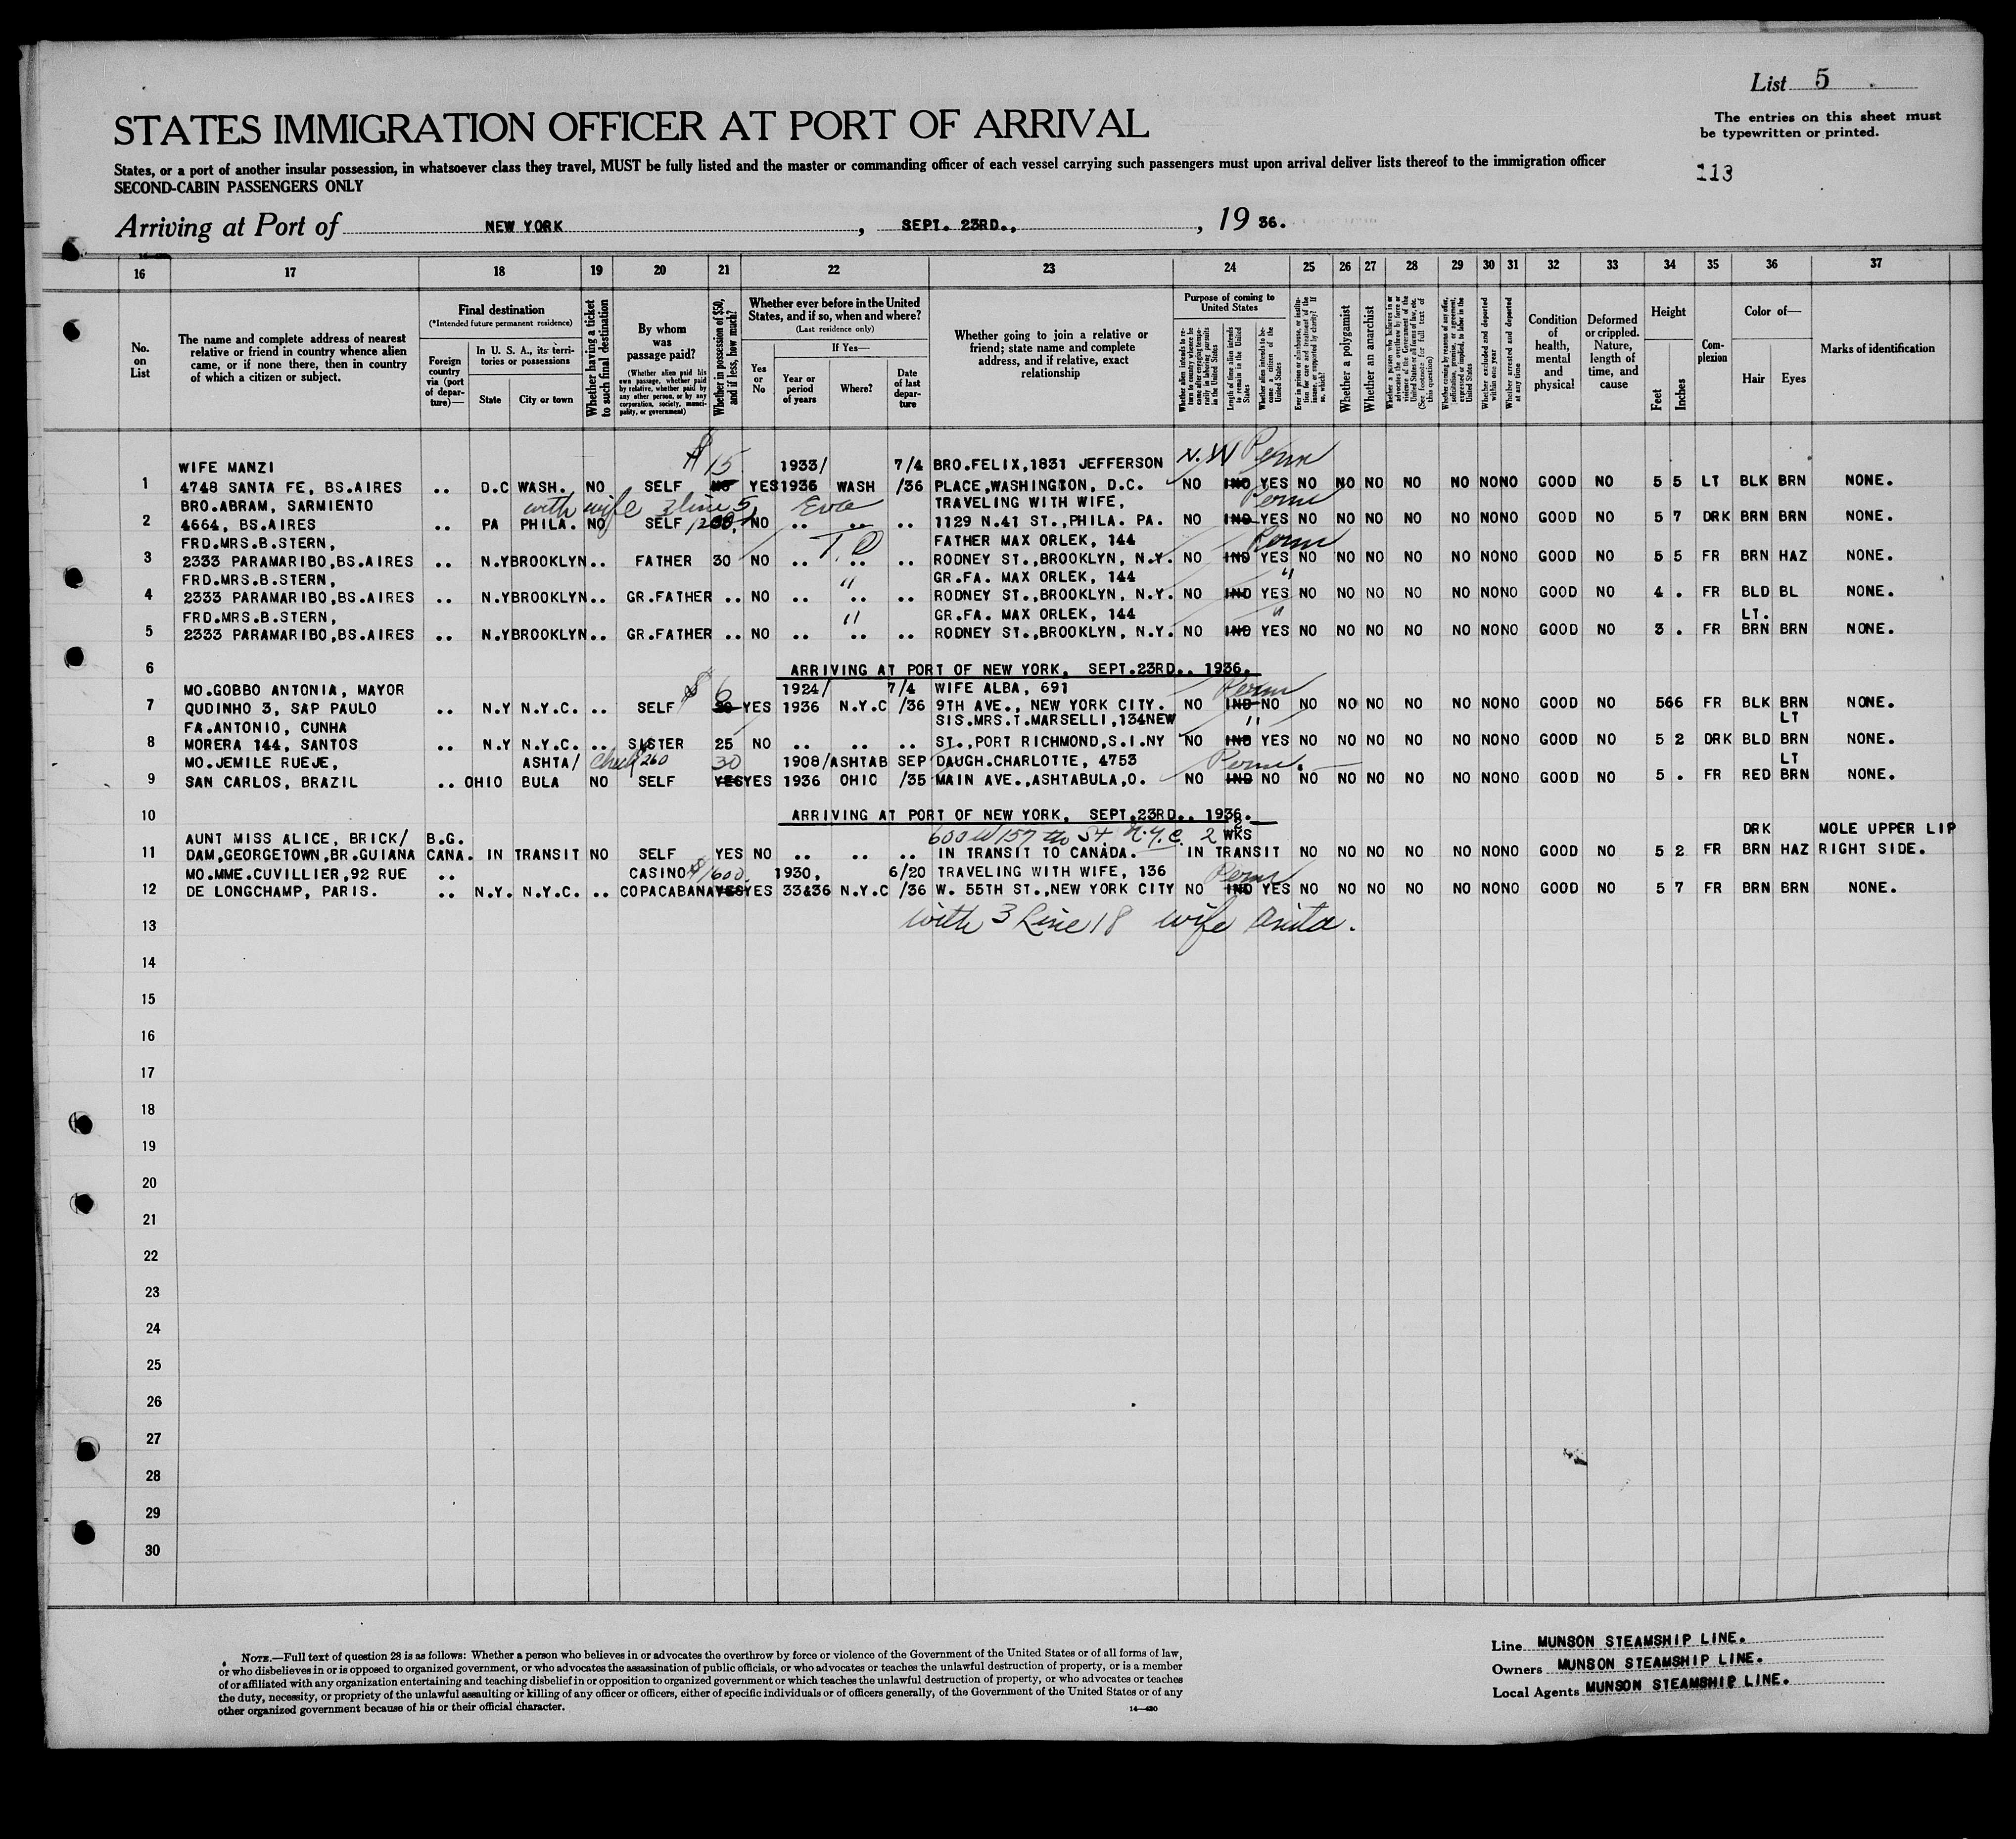 List 5
STATES IMMIGRATION OFFICER AT PORT OF ARRIVAL
The entries on this sheet must
be typewritten or printed.
States, or a port of another insular possession, in whatsoever class they travel, MUST be fully listed and the master or commanding officer of each vessel carrying such passengers must upon arrival deliver lists thereof to the immigration officer
SECOND-CABIN PASSENGERS ONLY
113
Arriving at Port of NEW YORK, SEPT. 23RD., , 19 36.
16 17 18 19 20 21 22 23 24 25 26 27 28 29 30 31 32 33 34 35 36 37
No. on List
The name and complete address of nearest relative or friend in country whence alien came, or if none there, then in country of which a citizen or subject.
Final destination
(*Intended future permanent residence)
Foreign country via (port of departure)—
In U. S. A., its territories or possessions
State
City or town
Whether having a ticket to such final destination
By whom was passage paid?
(Whether alien paid his own passage, whether paid by relative, whether paid by any other person, or by any corporation, society, municipality, or government)
Whether in possession of $50, and if less, how much?
Whether ever before in the United States, and if so, when and where?
(Last residence only)
Yes or No
If Yes—
Year or period of years
Where?
Date of last departure
Whether going to join a relative or friend; state name and complete address, and if relative, exact relationship
Purpose of coming to United States
Whether alien intends to return to country whence he came after engaging temporarily in laboring pursuits in the United States
Length of time alien intends to remain in the United States
Whether alien intends to become a citizen of the United States
Ever in prison or almshouse, or institution for care and treatment of the insane, or supported by charity? If so, which?
Whether a polygamist
Whether an anarchist
Whether a person who believes in or advocates the overthrow by force or violence of the Government of the United States or all forms of law, etc. (See footnote for full text of this question)
Whether coming by reason of any offer, solicitation, promise, or agreement, expressed or implied, to labor in the United States
Whether excluded and deported within one year
Whether arrested and deported at any time
Condition of health, mental and physical
Deformed or crippled. Nature, length of time, and cause
Height
Feet
Inches
Complexion
Color of—
Hair
Eyes
Marks of identification
$15 N.W Perm
WIFE MANZI 1933/ 7/4 BRO.FELIX,1831 JEFFERSON
1 4748 SANTA FE, BS.AIRES .. D.C WASH. NO SELF NO YES 1936 WASH /36 PLACE,WASHINGTON, D.C. NO IND YES NO NO NO NO NO NO NO GOOD NO 5 5 LT BLK BRN NONE.
BRO.ABRAM, SARMIENTO with wife 3 line 5 Eva TRAVELING WITH WIFE, Perm
2 4664, BS.AIRES .. PA PHILA. NO SELF NO .. .. .. 1129 N.41 ST.,PHILA. PA. NO IND YES NO NO NO NO NO NO NO GOOD NO 5 7 DRK BRN BRN NONE.
FRD.MRS.B.STERN, FATHER MAX ORLEK, 144 Perm
3 2333 PARAMARIBO,BS.AIRES .. N.Y BROOKLYN .. FATHER 30 NO .. .. .. RODNEY ST.,BROOKLYN, N.Y. NO IND YES NO NO NO NO NO NO NO GOOD NO 5 5 FR BRN HAZ NONE.
FRD.MRS.B.STERN, " GR.FA. MAX ORLEK, 144 "
4 2333 PARAMARIBO,BS.AIRES .. N.Y BROOKLYN .. GR.FATHER .. NO .. .. .. RODNEY ST.,BROOKLYN, N.Y. NO IND YES NO NO NO NO NO NO NO GOOD NO 4 . FR BLD BL NONE.
FRD.MRS.B.STERN, " GR.FA. MAX ORLEK, 144 " LT.
5 2333 PARAMARIBO,BS.AIRES .. N.Y BROOKLYN .. GR.FATHER .. NO .. .. .. RODNEY ST.,BROOKLYN, N.Y. NO IND YES NO NO NO NO NO NO NO GOOD NO 3 . FR BRN BRN NONE.
6 ARRIVING AT PORT OF NEW YORK, SEPT.23RD., 1936.
MO.GOBBO ANTONIA, MAYOR $6 1924/ 7/4 WIFE ALBA, 691 Perm
7 QUDINHO 3, SAP PAULO .. N.Y N.Y.C. .. SELF YES 1936 N.Y.C /36 9TH AVE., NEW YORK CITY. NO IND NO NO NO NO NO NO NO NO GOOD NO 5 66 FR BLK BRN NONE.
FA.ANTONIO, CUNHA SIS.MRS.T.MARSELLI,134NEW " LT
8 MORERA 144, SANTOS .. N.Y N.Y.C. .. SISTER 25 NO .. .. .. ST.,PORT RICHMOND,S.I.NY NO IND YES NO NO NO NO NO NO NO GOOD NO 5 2 DRK BLD BRN NONE.
MO.JEMILE RUEJE, ASHTA/ Check $260 30 1908/ ASHTAB SEP DAUGH.CHARLOTTE, 4753 Perm. LT
9 SAN CARLOS, BRAZIL .. OHIO BULA NO SELF YES YES 1936 OHIO /35 MAIN AVE.,ASHTABULA,O. NO IND NO NO NO NO NO NO NO NO GOOD NO 5 . FR RED BRN NONE.
10 ARRIVING AT PORT OF NEW YORK, SEPT.23RD., 1936.
600 W 157 th St. N.Y.C. 2 WKS
AUNT MISS ALICE, BRICK/ B.G. DRK MOLE UPPER LIP
11 DAM,GEORGETOWN,BR.GUIANA CANA. IN TRANSIT NO SELF YES NO .. .. .. IN TRANSIT TO CANADA. IN TRANSIT NO NO NO NO NO NO NO GOOD NO 5 2 FR BRN HAZ RIGHT SIDE.
MO.MME.CUVILLIER,92 RUE .. CASINO $1600. 1930, 6/20 TRAVELING WITH WIFE, 136 Perm
12 DE LONGCHAMP, PARIS. .. N.Y. N.Y.C. .. COPACABANA YES YES 33&36 N.Y.C /36 W. 55TH ST.,NEW YORK CITY NO IND YES NO NO NO NO NO NO NO GOOD NO 5 7 FR BRN BRN NONE.
13 with 3 Line 18 wife Anita.
14
15
16
17
18
19
20
21
22
23
24
25
26
27
28
29
30
NOTE.—Full text of question 28 is as follows: Whether a person who believes in or advocates the overthrow by force or violence of the Government of the United States or of all forms of law,
or who disbelieves in or is opposed to organized government, or who advocates the assassination of public officials, or who advocates or teaches the unlawful destruction of property, or is a member
of or affiliated with any organization entertaining and teaching disbelief in or opposition to organized government or which teaches the unlawful destruction of property, or who advocates or teaches
the duty, necessity, or propriety of the unlawful assaulting or killing of any officer or officers, either of specific individuals or of officers generally, of the Government of the United States or of any
other organized government because of his or their official character.
14—430
Line MUNSON STEAMSHIP LINE.
Owners MUNSON STEAMSHIP LINE.
Local Agents MUNSON STEAMSHIP LINE.